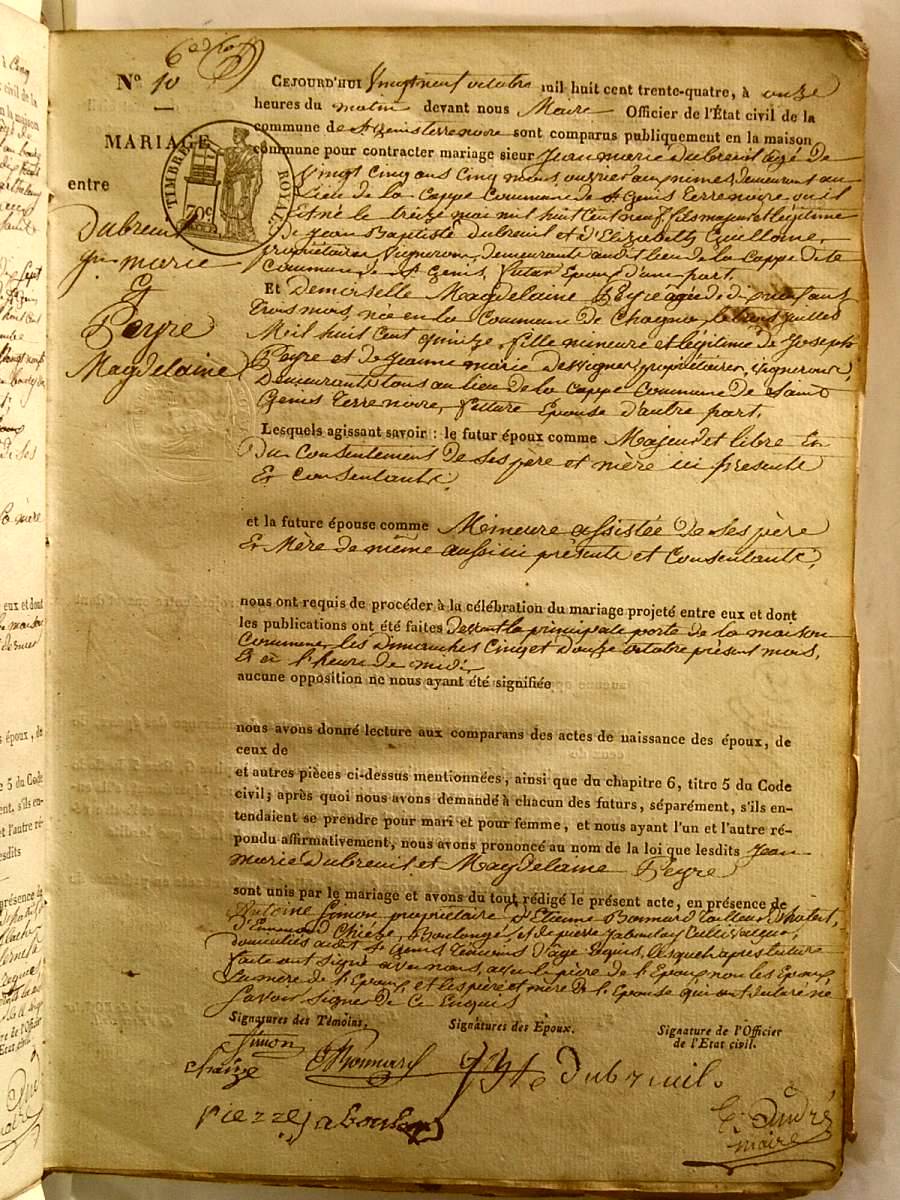 N.º 10
MARIAGE
entre
Dubreuil
Jn. marie
&
Peyre
Magdelaine
TIMBRE ROYAL
70c
CEJOURD'HUI Vingt neuf octobre mil huit cent trente-quatre, à onze
heures du matin devant nous Maire Officier de l'État civil de la
commune de St Genis terrenoire sont comparus publiquement en la maison
commune pour contracter mariage sieur Jean marie Dubreuil agé de
Vingt Cinq ans Cinq mois, ouvrier aux mines, demeurant au
Lieu de la Cappe Commune de St Genis Terrenoire, ou il
Est né le treize mai mil huit Cent neuf, fils majeur et légitime
de Jean Baptiste Dubreuil et d'Elizabeth Guillome,
propriétaires Vignerons, demeurants audit lieu de la Cappe dite
Commune de St Genis, futur Epoux d'une part,
Et Demoiselle Magdelaine Peyre agée de dix neuf ans
trois mois, née en la Commune de Chagnon le juillet
Mil huit Cent quinze, fille mineure et légitime de Joseph
Peyre et de Jeanne marie desvignes, propriétaires, vignerons,
Demeurants tous au lieu de la Cappe Commune de Saint
Genis Terrenoire, future Epouse d'autre part,
Lesquels agissant savoir : le futur époux comme Majeur et libre En
Du Consentement de Ses père et mère ici presents
Et Consentants,
et la future épouse comme Mineure assistée de Ses père
Et Mère de même aussi ici présents et Consentants,
nous ont requis de procéder à la célébration du mariage projeté entre eux et dont
les publications ont été faites devant la principale porte de la maison
Commune, les Dimanches Cinq et douze octobre présent mois,
Et à l'heure de midi,
aucune opposition ne nous ayant été signifiée
nous avons donné lecture aux comparans des actes de naissance des époux, de
ceux de
et autres pièces ci-dessus mentionnées, ainsi que du chapitre 6, titre 5 du Code
civil; après quoi nous avons demandé à chacun des futurs, séparément, s'ils en-
tendaient se prendre pour mari et pour femme, et nous ayant l'un et l'autre ré-
pondu affirmativement, nous avons prononcé au nom de la loi que lesdits Jean
marie Dubreuil et Magdelaine Peyre
sont unis par le mariage et avons du tout rédigé le présent acte, en présence de
Antoine Simon propriétaire d'Etienne Bonnard Tailleur d'habit,
Chieze, Boulanger, et de pierre Jaboulay Cultivateur,
domiciliés audit St Genis Témoins d'âge requis, lesquels après lecture
faite ont signé avec nous, avec le père de l'Epoux, non les Epoux,
La mère de l'Epoux, et les père et mère de l'Epouse qui ont déclaré ne
Savoir signer de Ce Enquis
Signatures des Témoins. Signatures des Époux. Signature de l'Officier
de l'Etat civil.
Simon
chaize Bonnard J Bte Dubreuil.
pierre jaboulay
André
maire